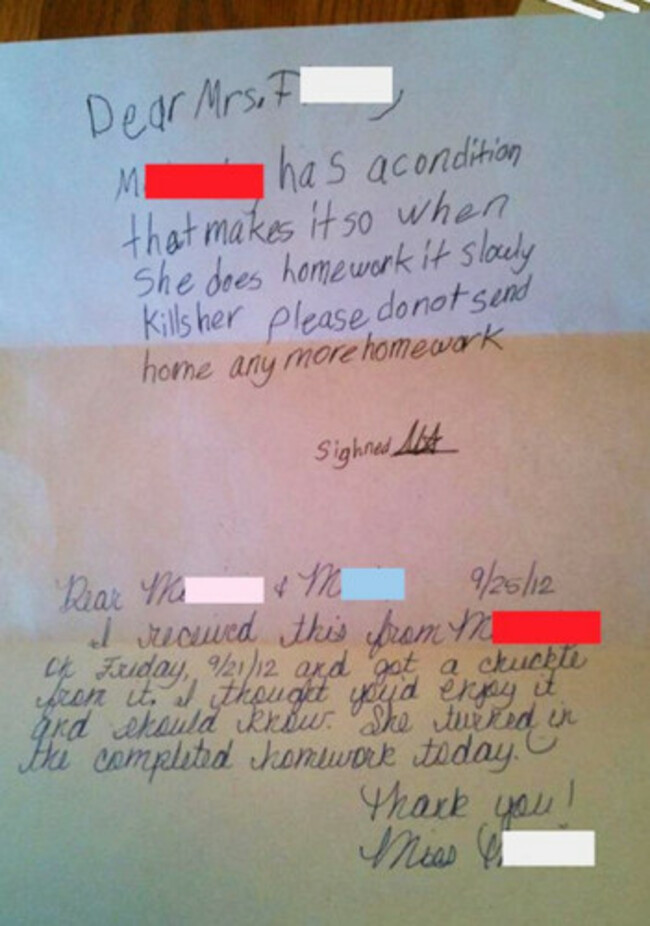 Dear Mrs. F
M has a condition
that makes it so when
she does homework it slowly
kills her please do not send
home any more homework
Sighned
Dear M & M 9/25/12
I received this from M
on Friday, 9/21/12 and got a chuckle
from it. I thought you'd enjoy it
and should know. She turned in
the completed homework today.
Thank you!
Miss